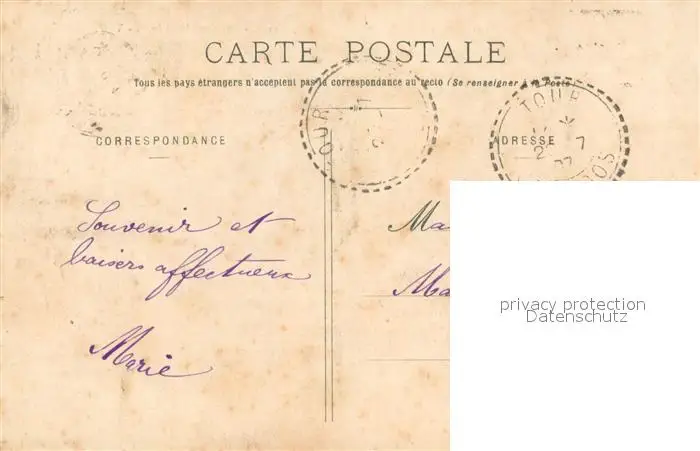 CARTE POSTALE
Tous les pays étrangers n'acceptent pas la correspondance au recto (Se renseigner à la Poste)
CORRESPONDANCE
ADRESSE
TOUR
7
Souvenir et
baisers affectueux
Marie
Ma
Ma
privacy protection
Datenschutz